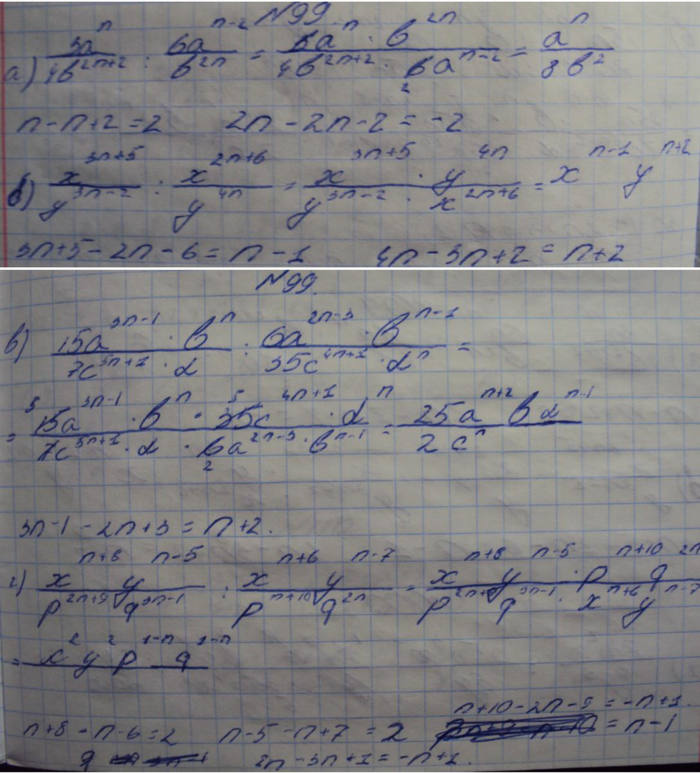 N99
а) 3a^n / 4b^{2n+2} : 6a^{n-2} / b^{2n} = 3a^n · b^{2n} / 4b^{2n+2} · 6a^{n-2} = a^n / 8b^2
2
n-n+2=2 2n-2n-2=-2
б) x^{3n+5} / y^{3n-2} : x^{2n+6} / y^{4n} = x^{3n+5} · y^{4n} / y^{3n-2} · x^{2n+6} = x^{n-1} y^{n+2}
3n+5-2n-6=n-1 4n-3n+2=n+2
N99.
в) 15a^{3n-1} · b^n / 7c^{3n+1} · d : 6a^{2n-3} · b^{n-1} / 35c^{4n+1} · d^n =
= 15a^{3n-1} · b^n · 35c^{4n+1} · d^n / 7c^{3n+1} · d · 6a^{2n-3} · b^{n-1} = 25a^{n+2} b d^{n-1} / 2c^n
5 5
2
3n-1-2n+3=n+2.
г) x^{n+8} y^{n-5} / p^{2n+9} q^{3n-1} : x^{n+6} y^{n-7} / p^{n+10} q^{2n} = x^{n+8} y^{n-5} · p^{n+10} q^{2n} / p^{2n+9} q^{3n-1} · x^{n+6} y^{n-7}
= x^2 y^2 p^{1-n} q^{1-n}
n+10-2n-9=-n+1.
n+8-n-6=2 n-5-n+7=2 =n-1
2n-3n+1=-n+1.